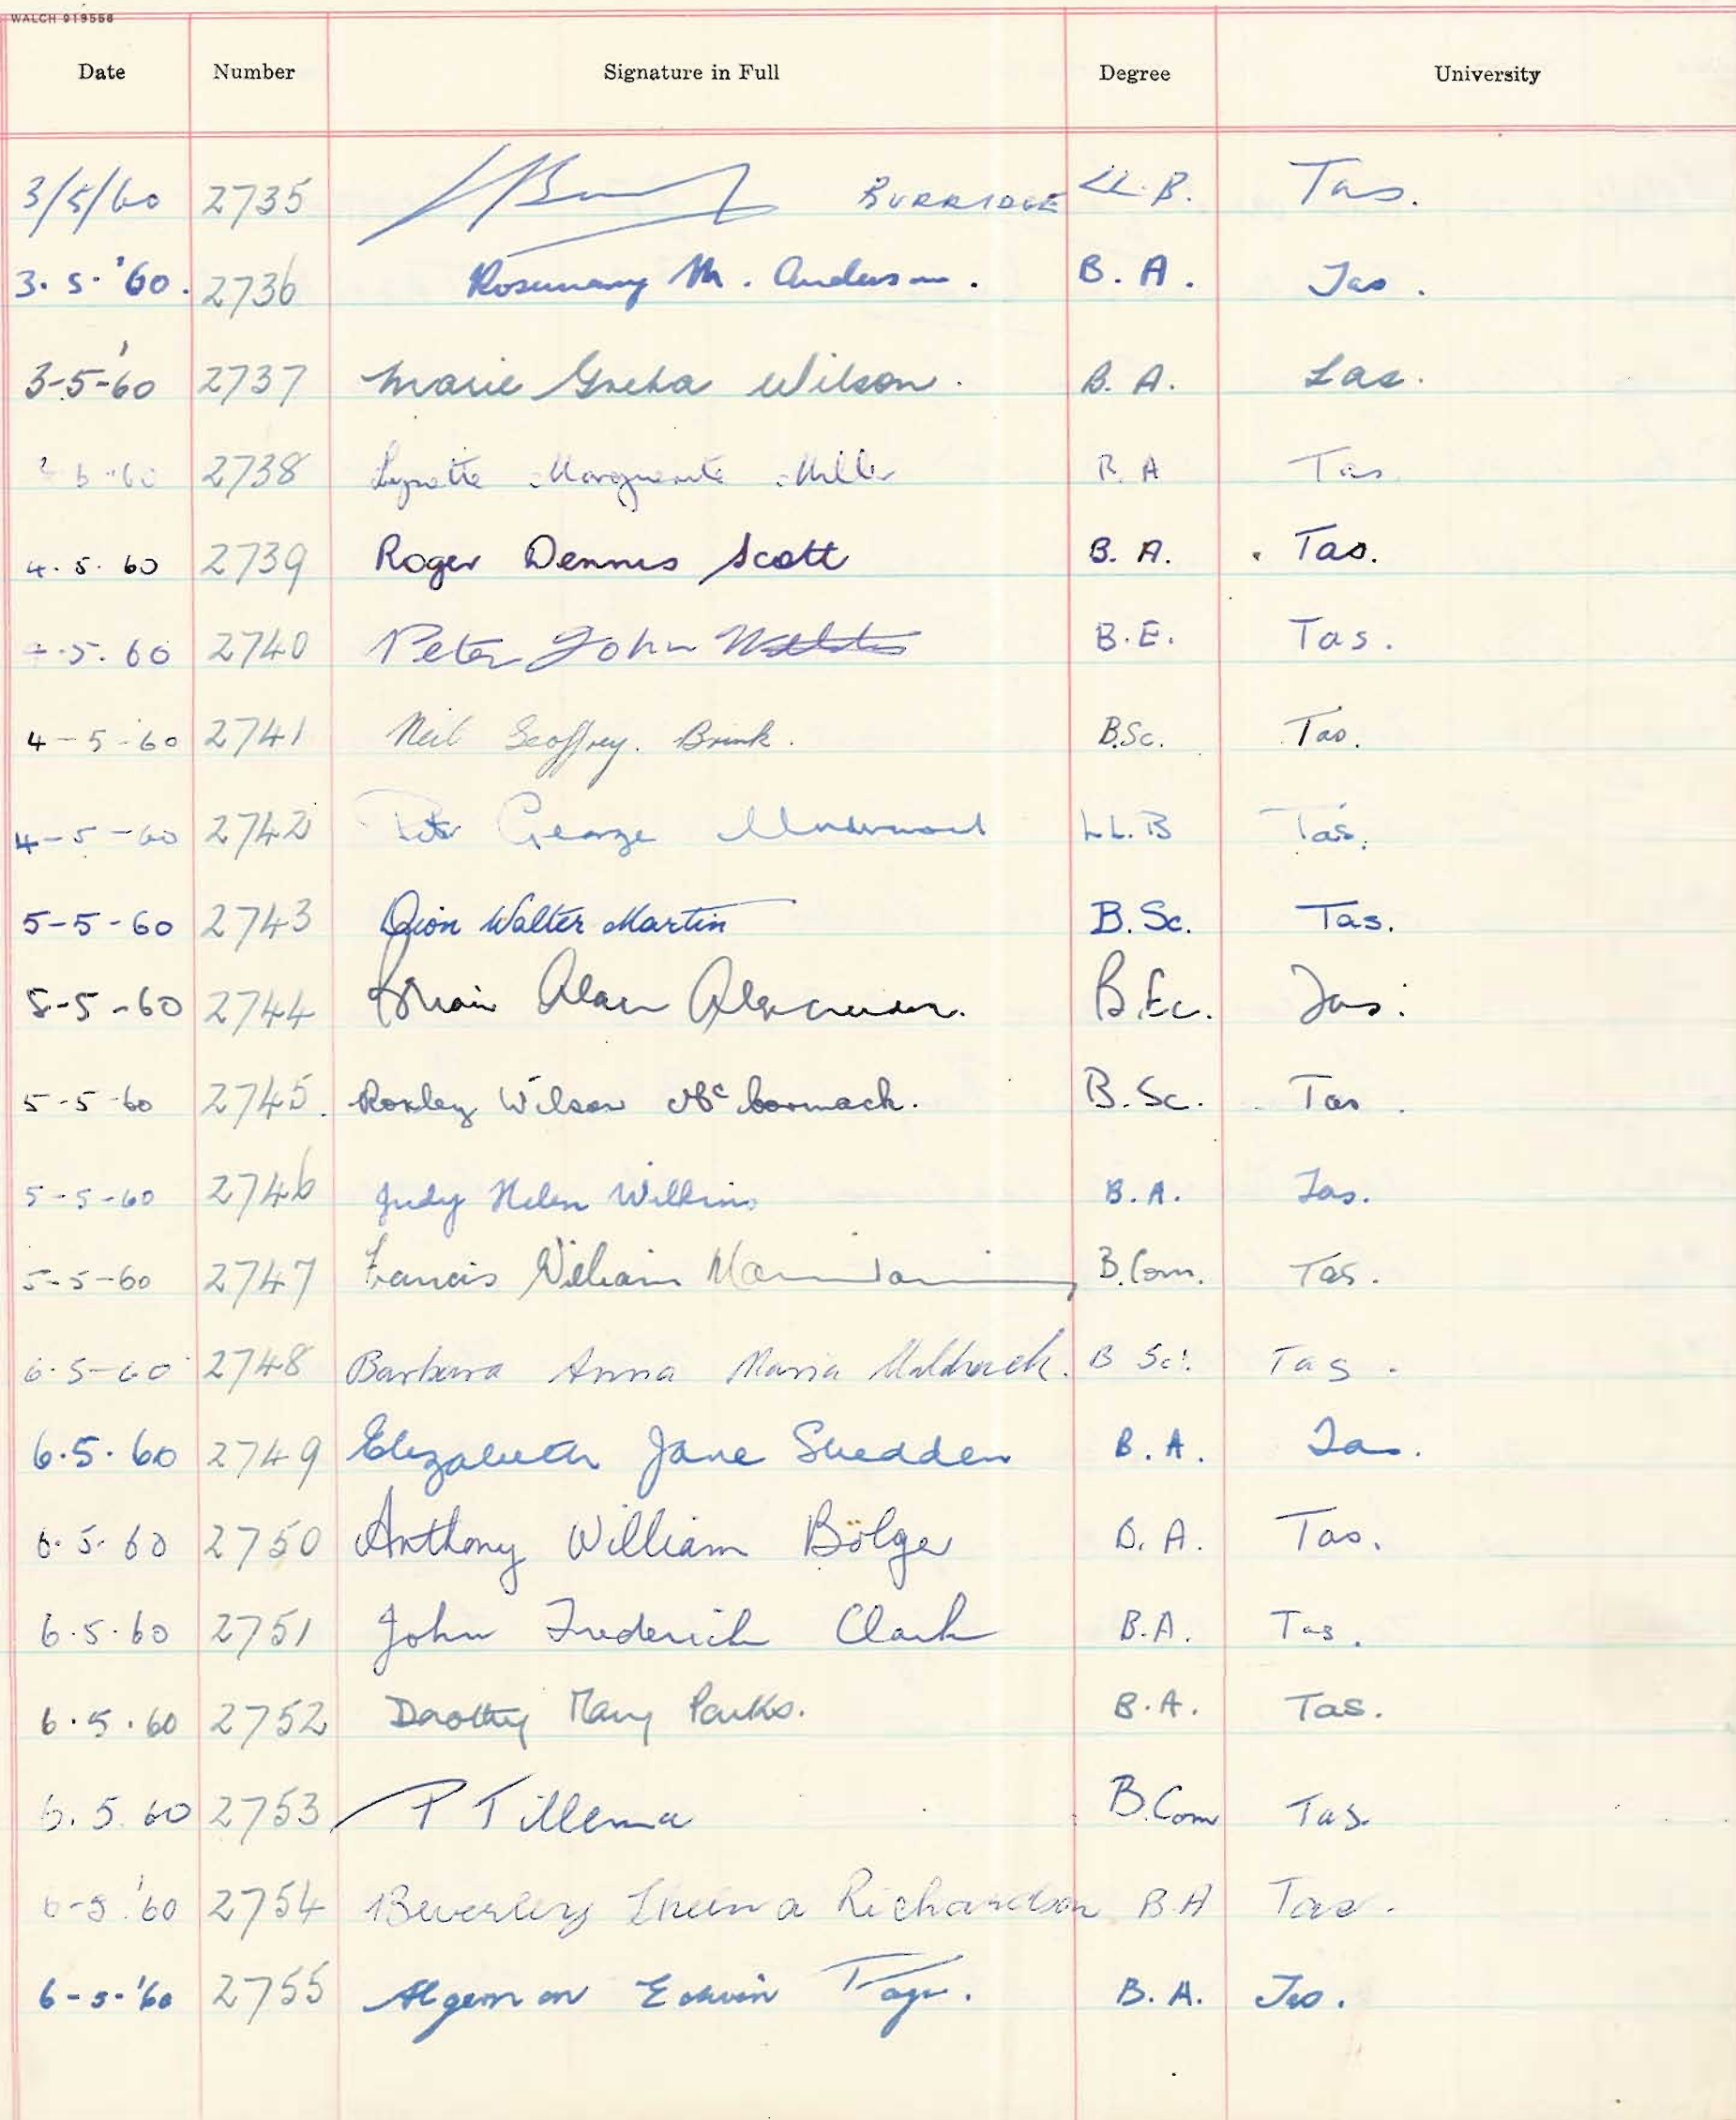 WALCH 919556
Date Number Signature in Full Degree University
3/5/60 2735 BURRIDGE LL.B. Tas.
3.5.'60. 2736 Rosemary M. Anderson. B.A. Tas.
3-5-'60 2737 Marie Greta Wilson. B.A. Tas.
2738 Lynette Marguerite Miller B.A Tas
4.5.60 2739 Roger Dennis Scott B.A. Tas.
5.60 2740 Peter John B.E. Tas.
4-5-60 2741 Neil Geoffrey. Brink. B.Sc. Tas.
4-5-60 2742 Peter George Underwood LL.B Tas.
5-5-60 2743 Dion Walter Martin B.Sc. Tas.
5-5-60 2744 Brian Alan Alexander. B.Ec. Tas.
5-5-60 2745. Roxley Wilson McCormack. B.Sc. Tas.
5-5-60 2746 Judy Helen Wilkins B.A. Tas.
5-5-60 2747 Francis William B.Com. Tas.
6.5-60 2748 Barbara Anna Maria B Sc. Tas.
6.5.60 2749 Elizabeth Jane Shedden B.A. Tas.
6.5.60 2750 Anthony William Bölger B.A. Tas.
6.5.60 2751 John Frederick Clark B.A. Tas.
6.5.60 2752 Dorothy Mary Parks. B.A. Tas.
6.5.60 2753 P Tillema B.Com Tas.
6-5-'60 2754 Beverley Richardson B.A Tas.
6-5-'60 2755 Algernon Edwin B.A. Tas.